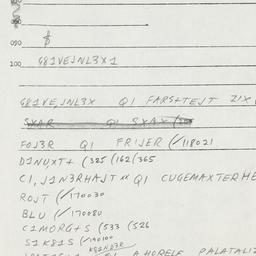 090 $
100 G81VEJNL3X1
G81VE,JNL3X Q1 FARS+TEJT ZIX
SXAR Q1 SXAX
FOJ3R Q1 FRIJER (/118021
D1NUXT+ (325 (162 (365
C1,J1N3RHAJT " Q1 CUGEMAXTERHE
ROJT (/170030
BLU (/170080
C1MORG+S (533 (526
S1K81S (/190100
K81ND3R
A HORELE PALATALI